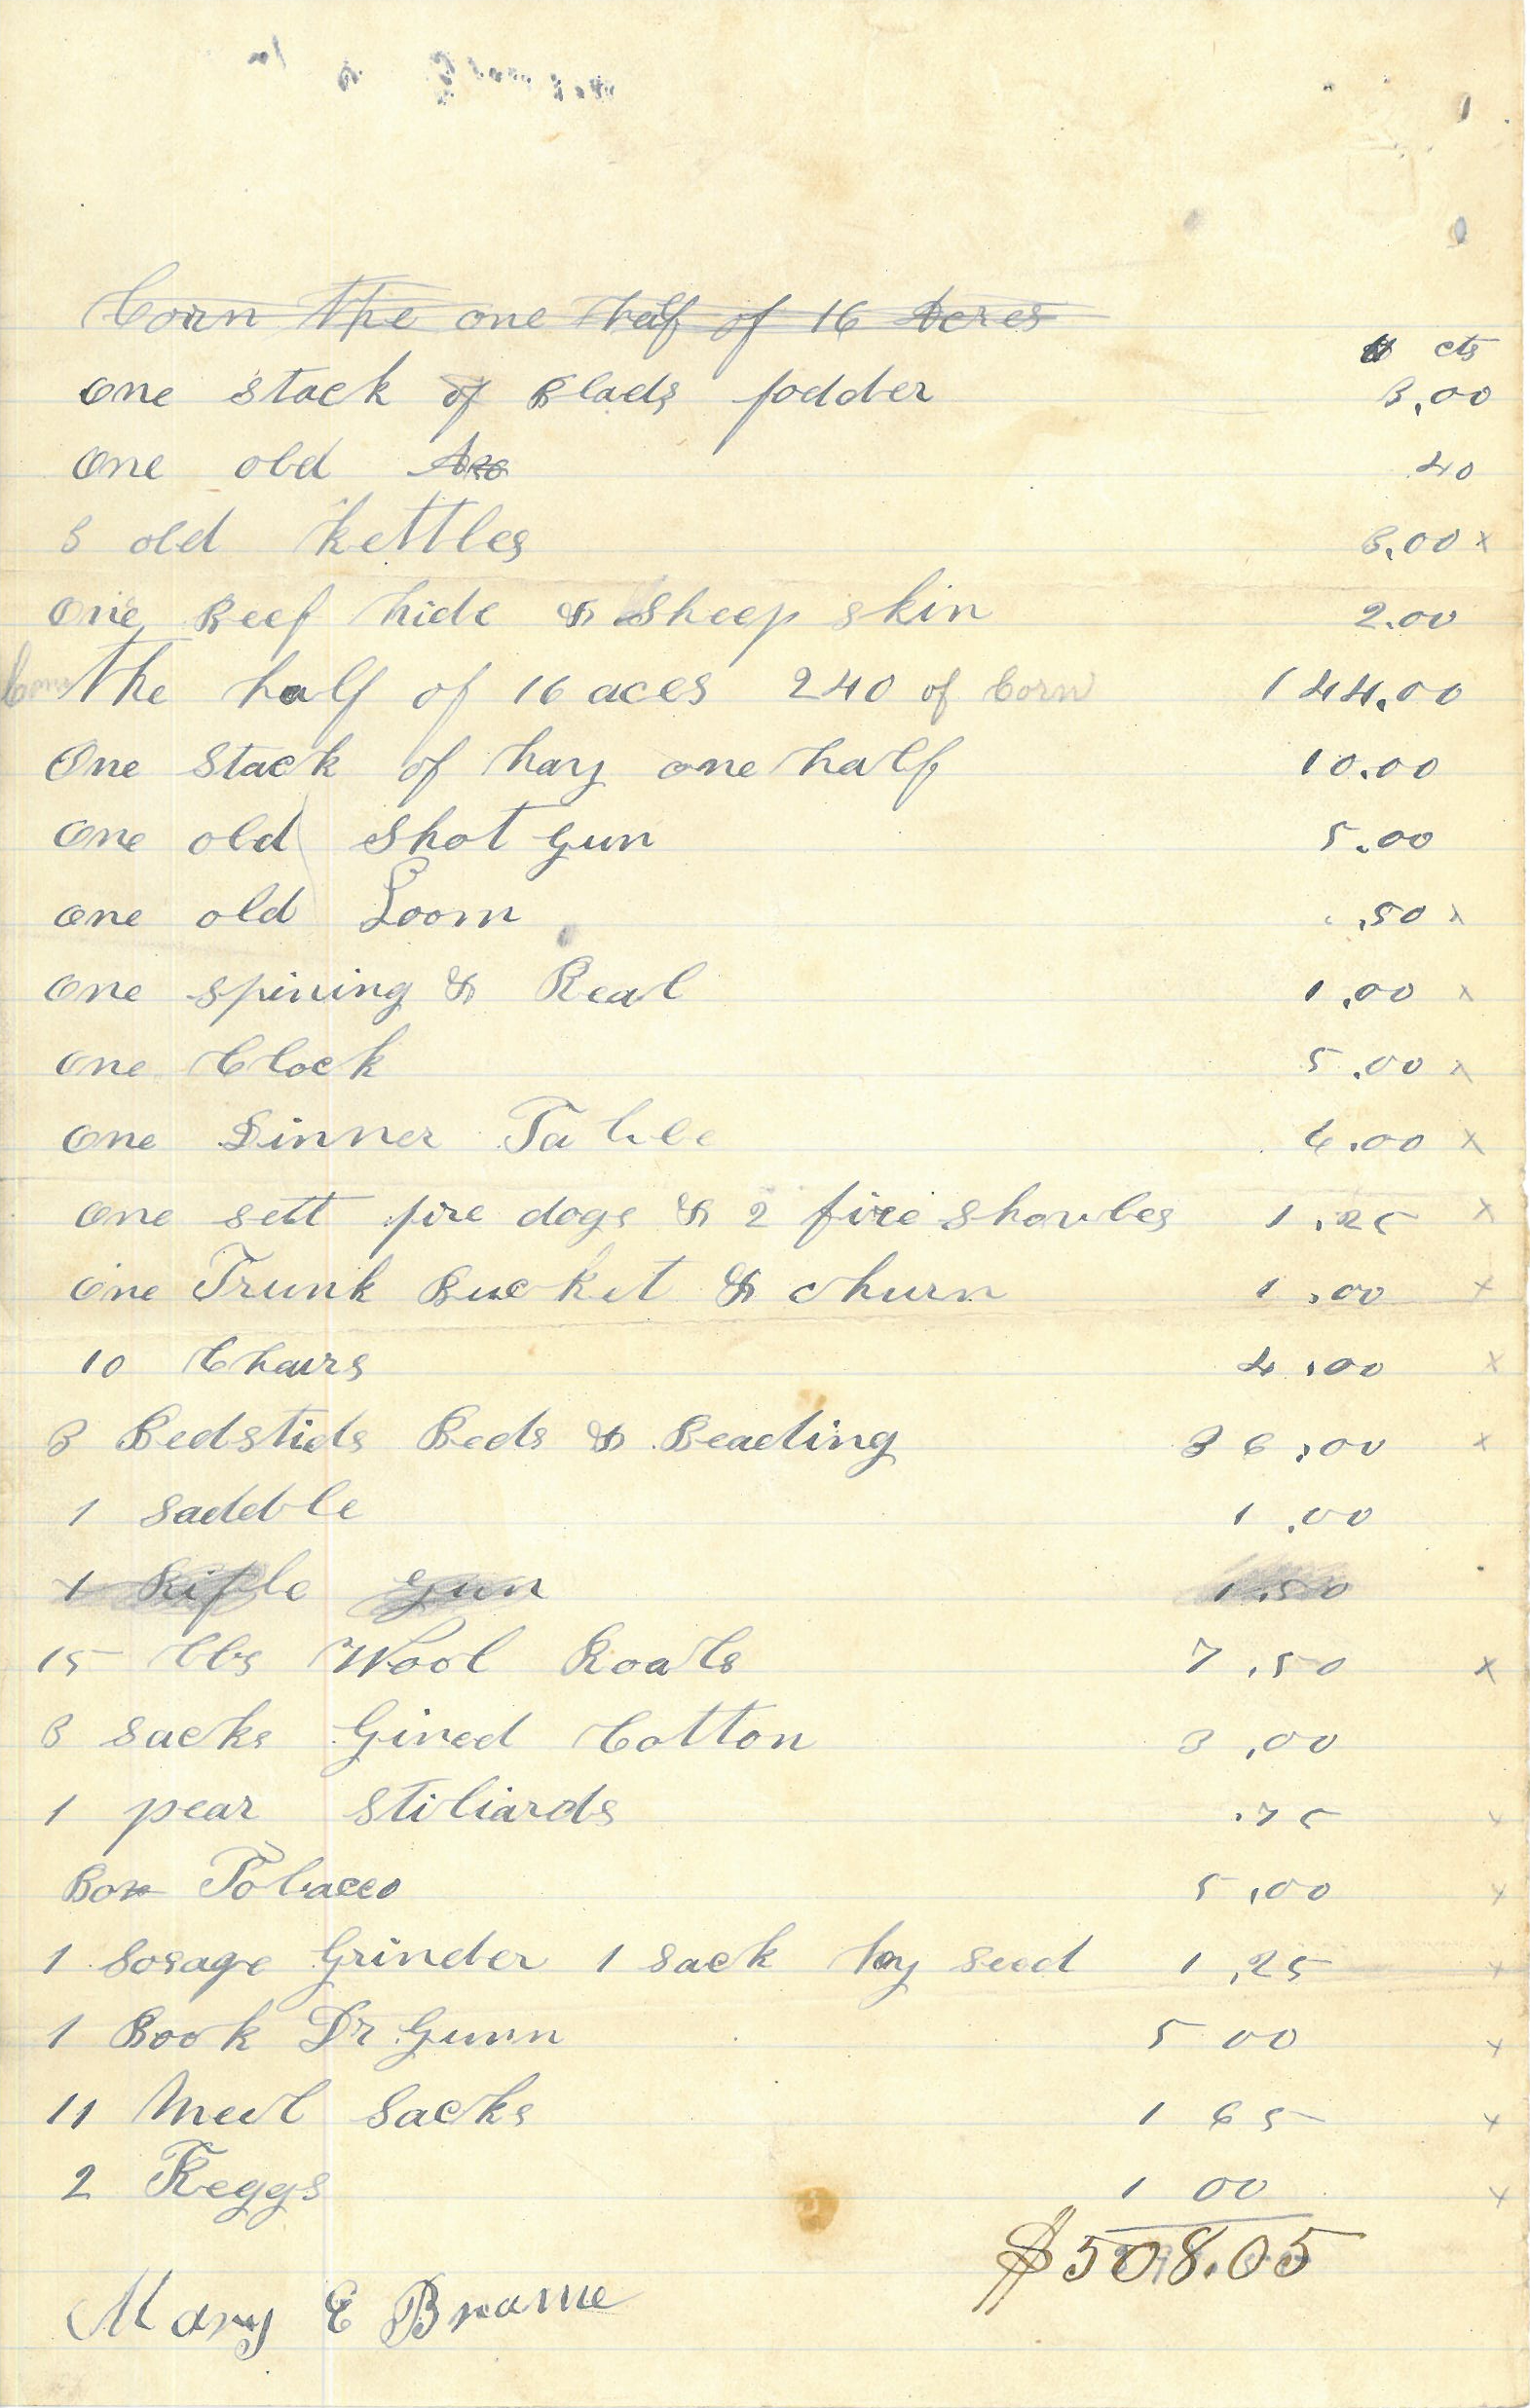 Corn the one half of 16 Acres
$ cts
one stack of Blads fodder 3.00
one old Axe 40
3 old kettles 3.00 x
one Beef hide & Sheep skin 2.00
Corn the half of 16 aces 240 of Corn 144.00
One Stack of hay one half 10.00
one old Shot gun 5.00
one old Loom .50 x
one spining & Real 1.00 x
one Clock 5.00 x
one Dinner Table 6.00 x
one sett fire dogs & 2 fire shovles 1.25 x
one Trunk Bucket & churn 1.00 x
10 Chairs 4.00 x
3 Bedstids Beds & Beading 36.00 x
1 saddle 1.00
1 Rifle gun 1.50
15 lbs Wool Roals 7.50 x
3 sacks Gined Cotton 3.00
1 pear stiliards .75 x
Box Tobacco 5.00 x
1 Sosage Grinder 1 sack hay seed 1.25 x
1 Book Dr Gunn 5 00 x
11 Meel Sacks 1 65 x
2 Keggs 1 00 x
$508.05
Mary E Brame